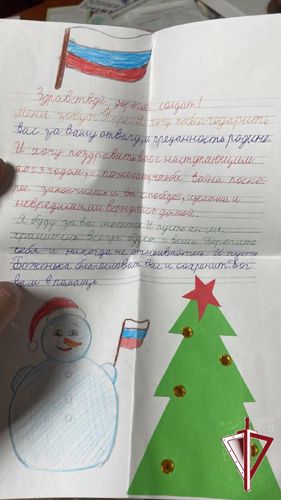 Здравствуй, дорогой солдат!
Меня зовут Я хочу поблагодарить
вас за вашу отвагу, и преданность родине.
И хочу поздравить вас с наступающим
годом, и пожелать, чтобы война поско-
рее закончилась и вы с победой, целыми и
невредимыми вернулись домой.
Я буду за вас молится. И пусть ангел
хранитель всегда будет с вами. Берегите
себя и никогда не отчаивайтесь. И пусть
Боженька благословит вас и сохранит. Бог
вам в помощь.